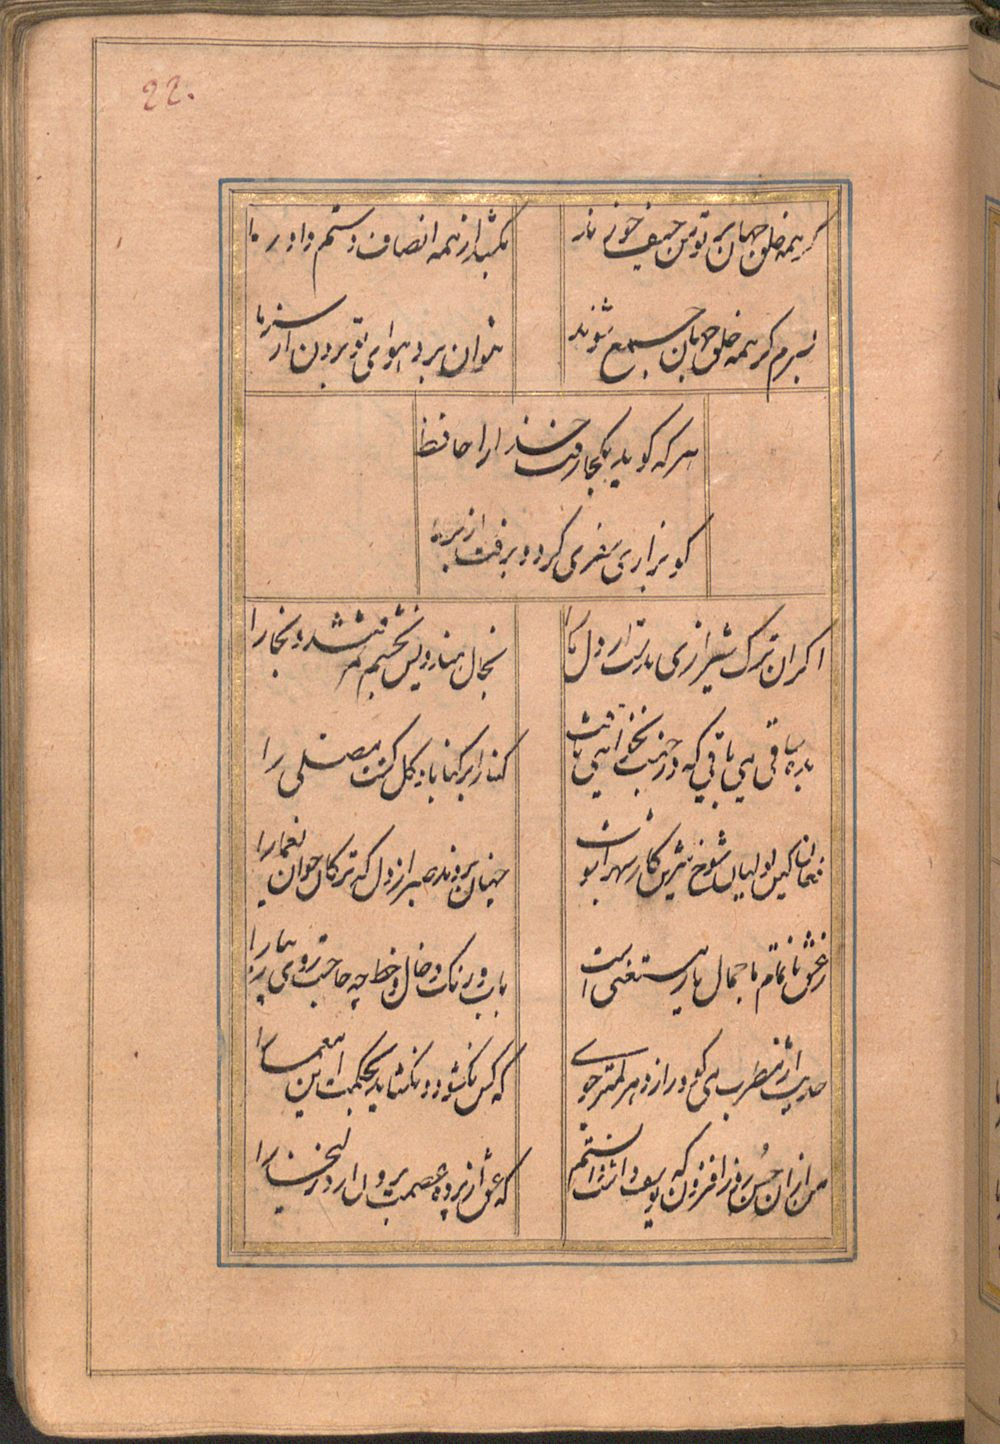 22.
گر همه خلق جهان بر تو و من حیف خورند
بکشد از همه انصاف و ستم داور ما
بسرم گر همه خلق جهان جمع شوند
نتوان برد هوای تو برون از سر ما
هر که گوید بکجا رفت خدا را حافظ
گو بزاری سفری کرد و برفت از بر ما
اگر ان ترک شیرازی بدست ارد دل ما را
بخال هندویش بخشم سمرقند و بخارا را
بده ساقی می باقی که در جنت نخواهی یافت
کنار اب رکناباد و گل گشت مصلی را
فغان کین لولیان شوخ شیرین کار شهر اشوب
چنان بردند صبر از دل که ترکان خوان یغما را
ز عشق ناتمام ما جمال یار مستغنی است
باب و رنگ و خال و خط چه حاجت روی زیبا را
حدیث از مطرب و می گو و راز دهر کمتر جوی
که کس نگشود و نگشاید بحکمت این معما را
من از ان حسن روز افزون که یوسف داشت دانستم
که عشق از پرده عصمت برون ارد زلیخا را